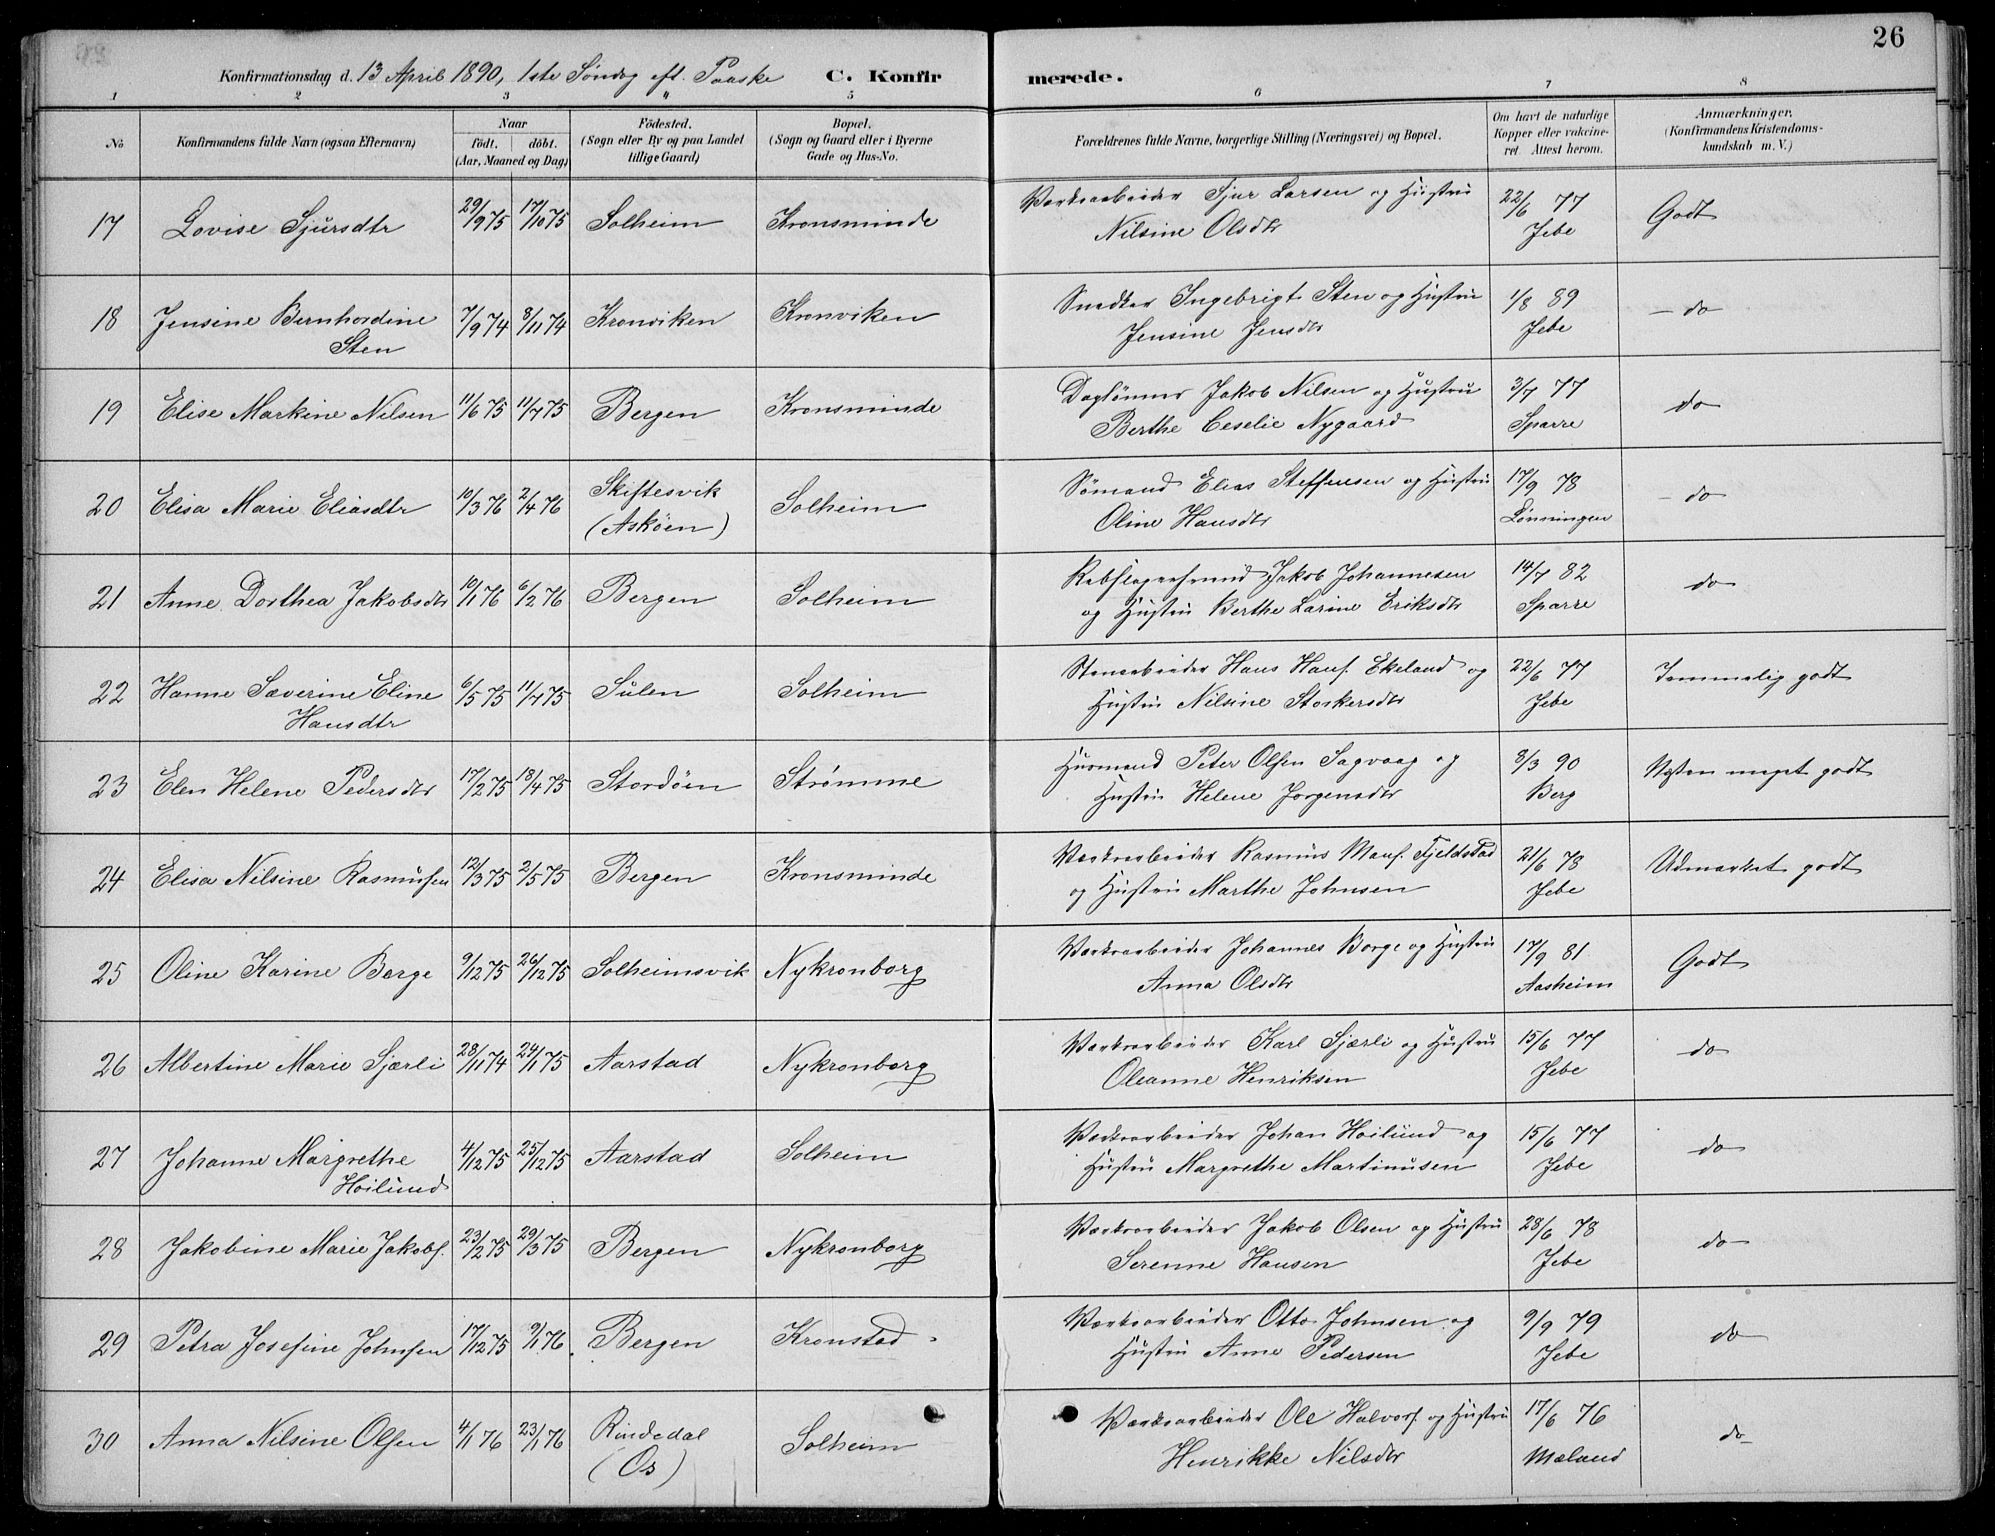 26
Konfirmationsdag d. 13 April 1890, 1ste Søndag eft. Paaske C. Konfir merede.
1 2 3 4 5 6 7 8
No
Konfirmandens fulde Navn (ogsaa Efternavn)
Naar
født. døbt.
(Aar, Maaned og Dag)
Fødested.
(Sogn eller By og paa Landet
tillige Gaard)
Bopæl.
(Sogn og Gaard eller i Byerne
Gade og Hus-No.
Forældrenes fulde Navne, borgerlige Stilling (Næringsvei) og Bopæl.
Om havt de naturlige
Kopper eller vakcine-
ret. Attest herom.
Anmærkninger.
(Konfirmandens Kristendoms-
kundskab m. V.)
17 Lovise Sjursdtr 29/9 75 17/10 75 Solheim Kronsminde Værksarbeider Sjur Larsen og Hustru 22/6 77 Godt
Nilsine Olsdtr Jebe
18 Jensine Bernhordine 7/9 74 8/11 74 Kronviken Kronviken Snedker Ingebrigt Sten og Hustru 1/8 89 do
Sten Jensine Jensdtr Jebe
19 Elise Markine Nilsen 11/6 75 11/7 75 Bergen Kronsminde Daglønner Jakob Nilsen og Hustru 3/7 77 do
Berthe Ceselie Nygaard Sparre
20 Elisa Marie Eliasdtr 10/3 76 2/4 76 Skiftesvik Solheim Sømand Elias Steffensen og Hustru 17/9 78 do
(Askøen) Oline Hansdtr Lønningen
21 Anne Dorthea Jakobsdtr 10/1 76 6/2 76 Bergen Solheim Jakob Johannesen 14/7 82 do
og Hustru Berthe Larine Eriksdtr Sparre
22 Hanne Sæverine Eline 6/5 75 11/7 75 Sulen Solheim Stenarbeider Hans Hans. Ekeland og 22/6 77 Temmelig godt
Hansdtr Hustru Nilsine Storkersdtr Jebe
23 Elen Helene Pedersdtr 17/2 75 18/4 75 Stordøen Strømme Husmand Peter Olsen Sagvaag og 8/3 90 Næsten meget godt
Hustru Helene Jørgensdtr Berg
24 Elisa Nilsine Rasmussen 12/3 75 2/5 75 Bergen Kronsminde Værksarbeider Rasmus Mons. Fjeldstad 21/6 78 Udmærket godt
og Hustru Marthe Johnsen Jebe
25 Oline Karine Borge 9/12 75 26/12 75 Solheimsvik Nykronborg Værksarbeider Johannes Borge og Hustru 17/9 81 Godt
Anna Olsdtr Aasheim
26 Albertine Marie Sjærli 28/11 74 24/1 75 Aarstad Nykronborg Værksarbeider Karl Sjærli og Hustru 15/6 77 do
Oleanne Henriksen Jebe
27 Johanne Margrethe 4/12 75 25/12 75 Aarstad Solheim Værksarbeider Johan Hoilund og 15/6 77 do
Hoilund Hustru Margrethe Martinusen Jebe
28 Jakobine Marie Jakobs. 23/2 75 29/3 75 Bergen Nykronborg Værksarbeider Jakob Olsen og Hustru 28/6 78 do
Serenne Hansen Jebe
29 Petra Josefine Johnsen 17/12 75 9/1 76 Bergen Kronstad Værksarbeider Otto Johnsen og 9/9 79 do
Hustru Anne Pedersen Jebe
30 Anna Nilsine Olsen 4/1 76 23/1 76 Rindedal Solheim Værksarbeider Ole Halvors. og Hustru 17/6 76 do
(Os) Henrikke Nilsdtr Mæland